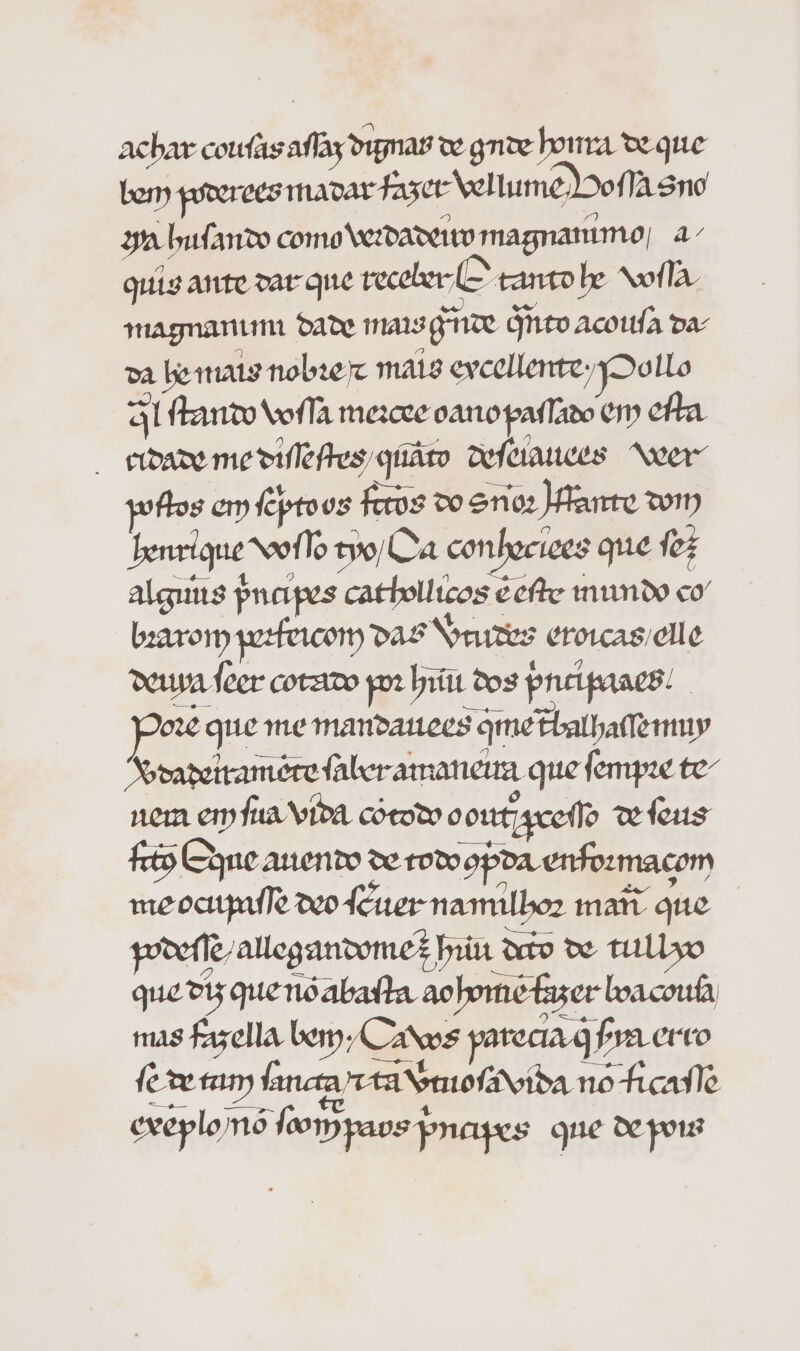 achar cousas assaz dignas de gnde honrra de que
bem poderees mãdar fazer vellume, Vossa sno
rya husando como verdadeiro magnanimo, a
quis ante dar que receber, E tanto he vossa
magnanimi dade mais grnde qñto acousa da
da he mais nobre, ⁊ mais excellente, Pollo
q̃l stando vossa mercee oano passado em esta
cidade me dissestes, quãto desejauees veer
postos em scp̃to os fctos do sñor Jffante dom
henrique vosso tyo, Ca conhociees que sez
alguũs pñcipes cathollicos ẽ este mundo co
brarom perfeicom das v̾tudes eroicas, elle
deuya seer cotado por huũ dos pñcipaaes.
Porẽ que me mandauees q̃ me t̃balhasse muy
v̾dadeiramẽte saber a maneira que sempre te
uera em sua vida cõ todo o outº ꝓcesso de seus
fctos E que auendo de todo ꝯpda enformaçom
me ocupasse deo scp̃uer na milhor mañ que
podesse, allegandomez huũ dcto de tullyo
que diz que nõ abasta ao homẽ fazer boa cousa
mas fazella bem. Ca vos parecia q̃ sr̃ya erro
se de tam sancta, ⁊ tã v̾tuosa vida nõ ficasse
exẽplo, nõ soomte paos pñcipes que depois